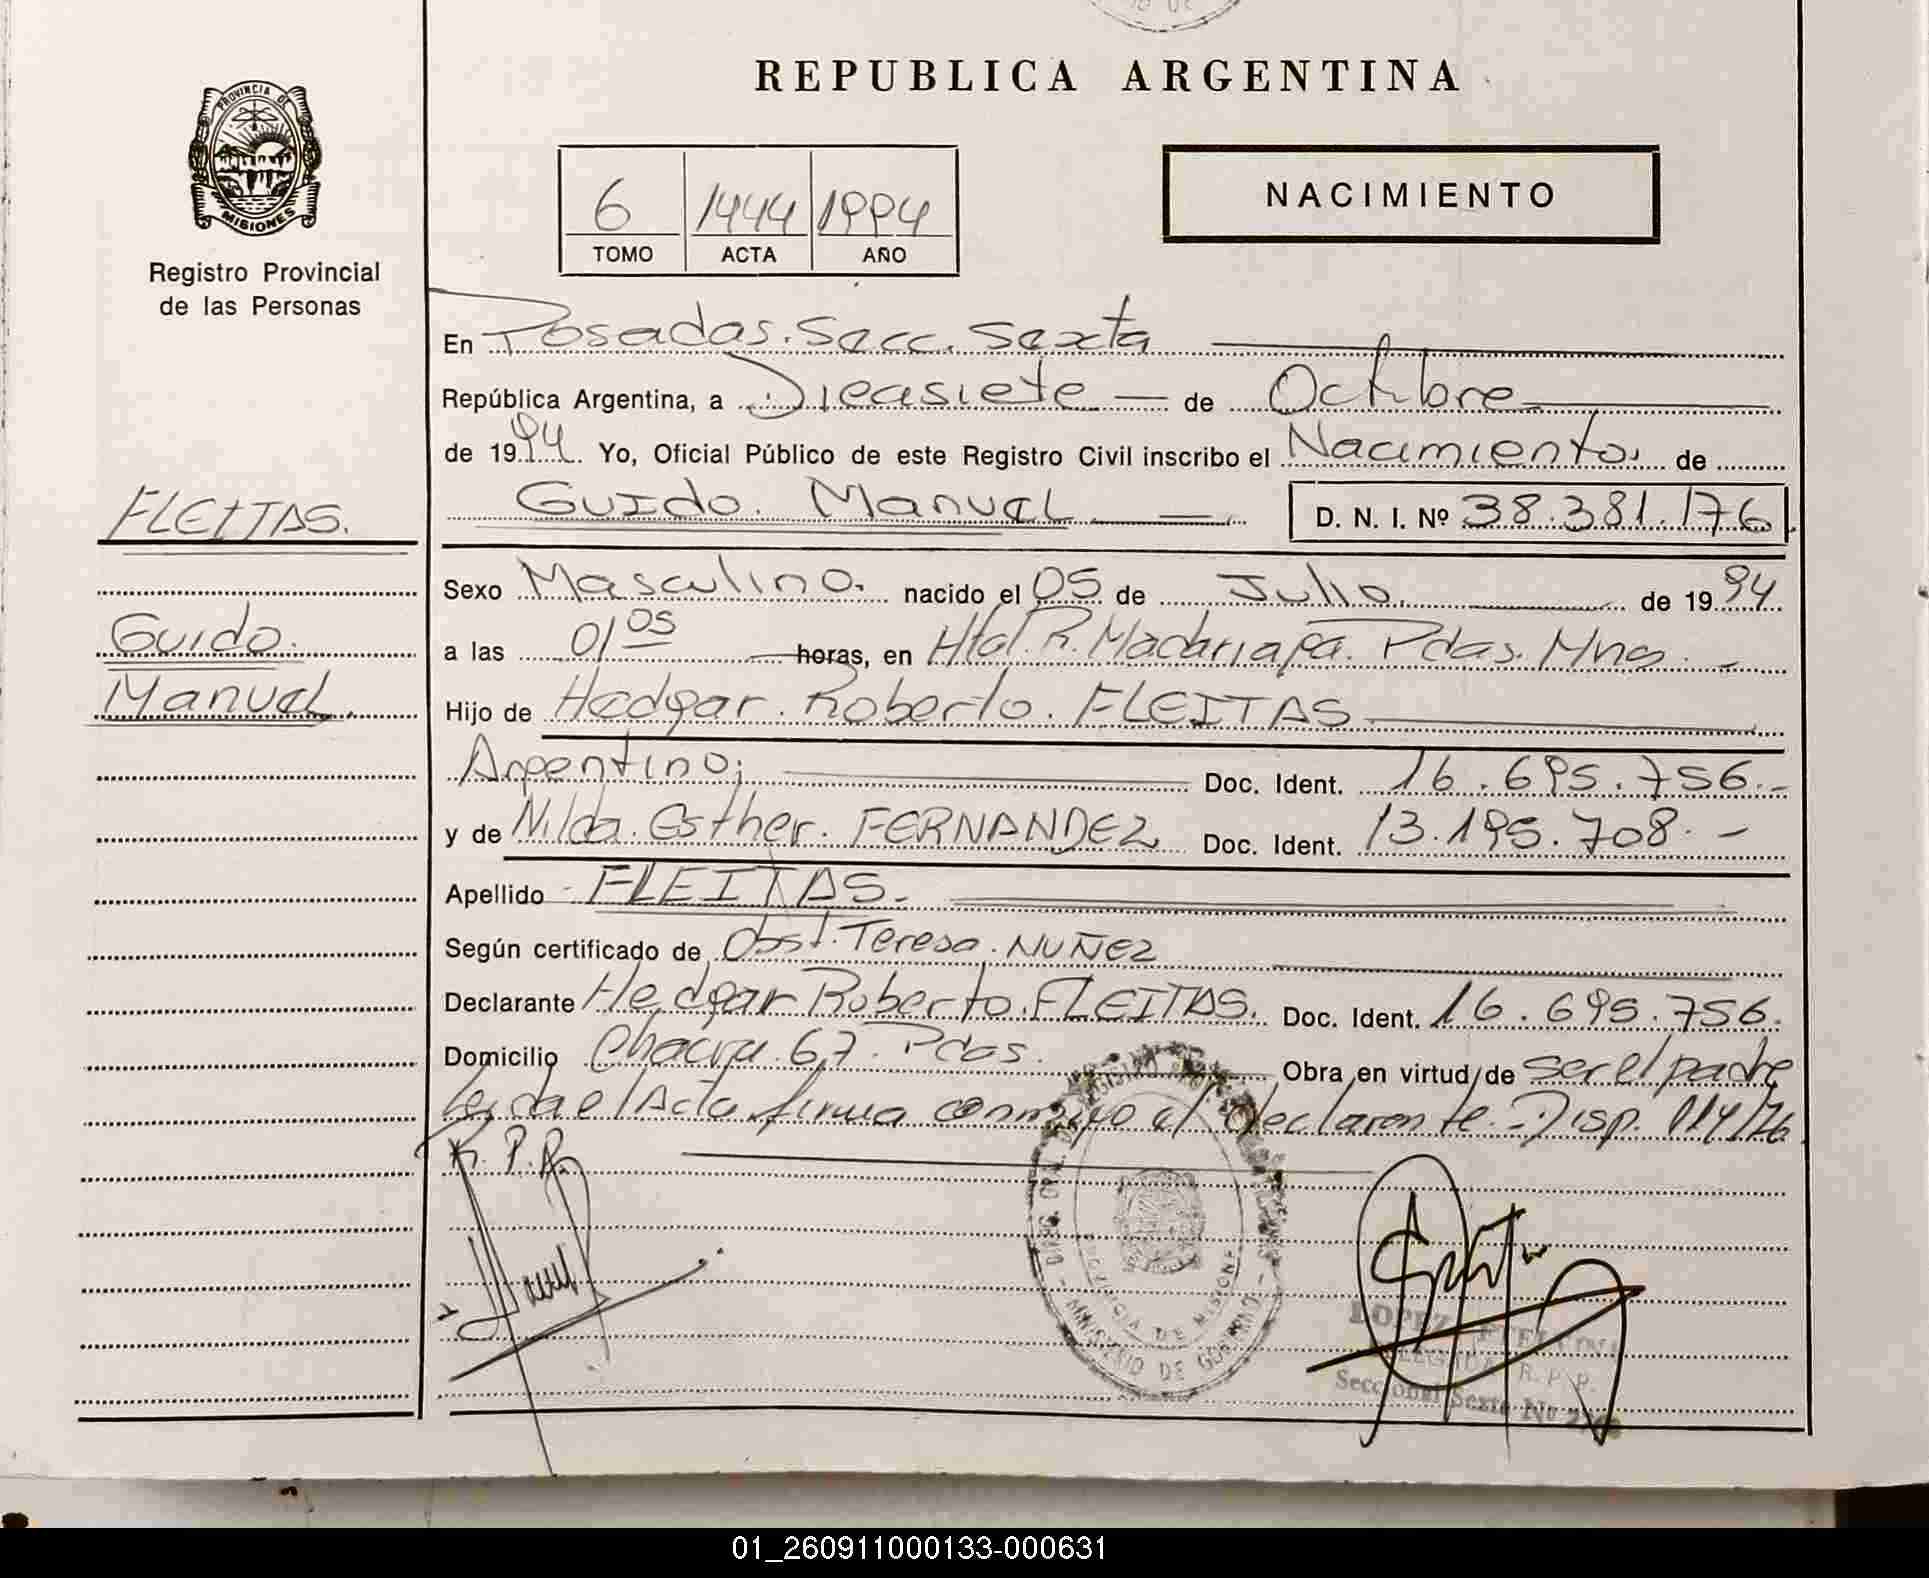 REPUBLICA ARGENTINA
PROVINCIA DE
MISIONES
Registro Provincial
de las Personas
6 1444 1994
TOMO ACTA AÑO
NACIMIENTO
En Posadas. Secc. Sexta
República Argentina, a Diecisiete de Octubre
de 1994. Yo, Oficial Público de este Registro Civil inscribo el Nacimiento. de
FLEITAS.
Guido. Manuel D. N. I. Nº 38.381.176
Sexo Masculino. nacido el 05 de Julio. de 1994
Guido.
a las 01 05 horas, en Htal. R. Madariaga. Pdas. Mnes.
Manuel.
Hijo de Hedgar. Roberto. FLEITAS
Argentino; Doc. Ident. 16.695.756.-
y de Nilda. Esther. FERNANDEZ Doc. Ident. 13.195.708.-
Apellido FLEITAS.
Según certificado de Obst. Teresa. NUÑEZ
Declarante Hedgar Roberto. FLEITAS. Doc. Ident. 16.695.756.
Domicilio Chacra. 67. Pdas. Obra en virtud de ser el padre
Leida el Acta firma conmigo el declarante. Disp. 114/76.
R. P. P.
PROVINCIA DE MISIONES
MINISTERIO DE GOBIERNO
LOPEZ
R. P. P.
Seccional Sexta Nº
01_260911000133-000631